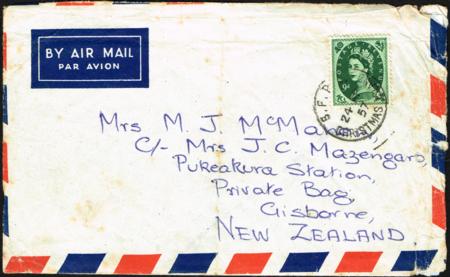 BY AIR MAIL
PAR AVION
9d
CHRISTMAS
24
57
Mrs M. J.
C/- Mrs J. C. Mazengarb,
Pukeakura Station,
Private Bag,
Gisborne,
NEW ZEALAND